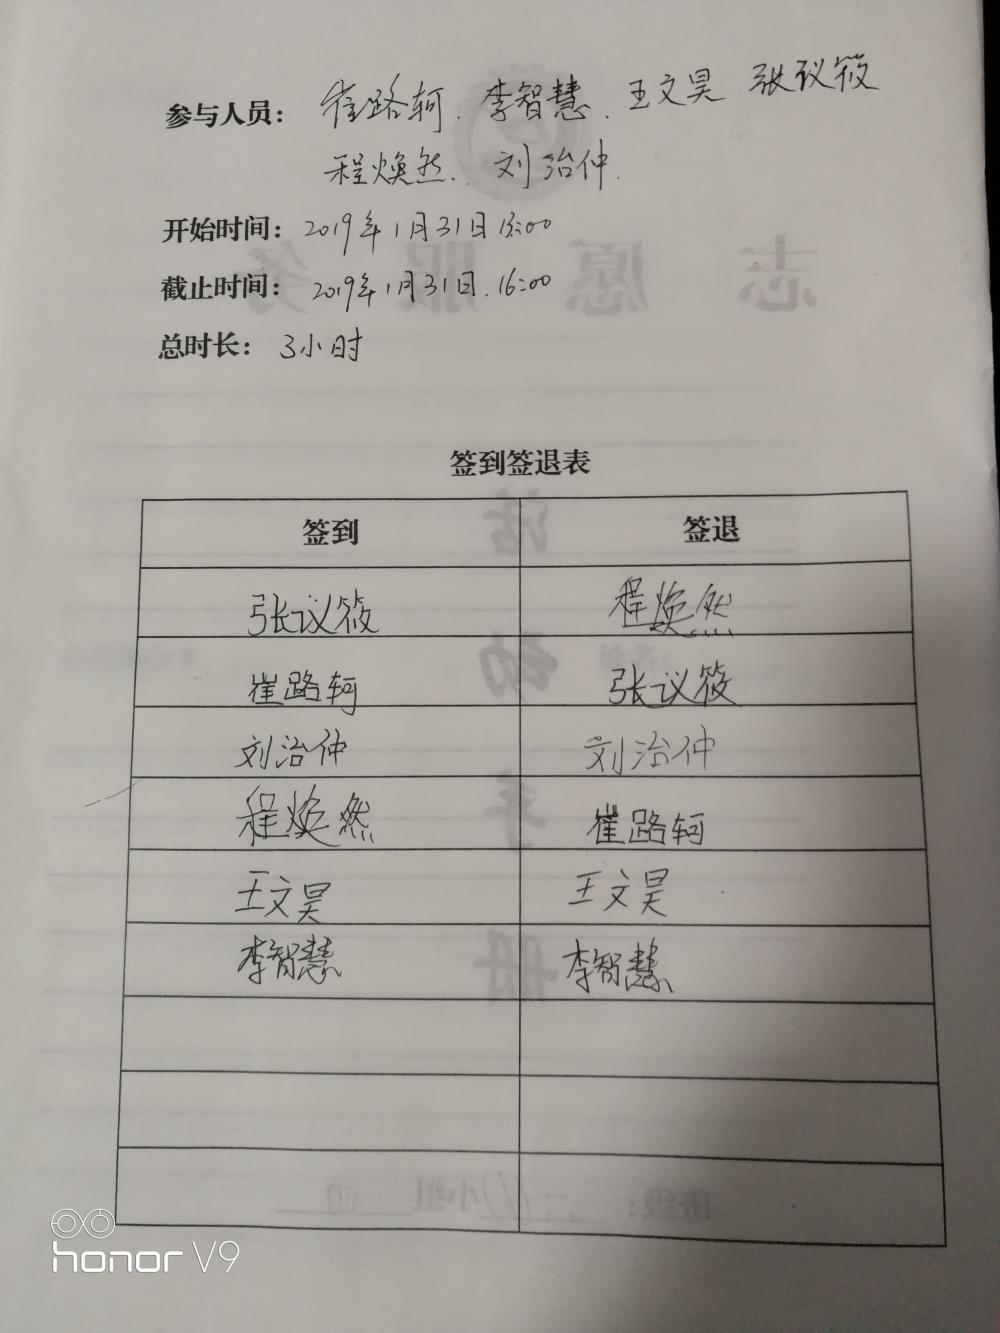 参与人员： 崔路轲. 李智慧. 王文昊 张议筱
程焕然. 刘治仲.
开始时间： 2019年1月31日13:00
截止时间： 2019年1月31日.16:00
总时长： 3小时
志愿服务
签到签退表
签到 签退
张议筱 程焕然
崔路轲 张议筱
刘治仲 刘治仲
程焕然 崔路轲
王文昊 王文昊
李智慧 李智慧
活
动
手
册
班级： 六(1) 小组 四
honor V9